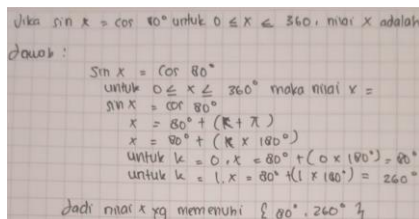 Jika sin x = cos 80° untuk 0 ≤ x ≤ 360, nilai x adalah
Jawab :
sin x = cos 80°
untuk 0 ≤ x ≤ 360° maka nilai x =
sin x = cos 80°
x = 80° + (k + π)
x = 80° + (k x 180°)
untuk k = 0, x = 80° + (0 x 180°) = 80°
untuk k = 1, x = 80° + (1 x 180°) = 260°
Jadi nilai x yg memenuhi { 80°, 260° }